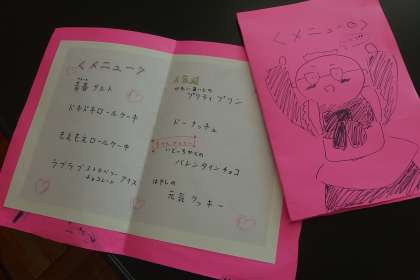 <メニュー>
青春タルト
ドキドキロールケーキ
もえもえロールケーキ
ラブラブストロベリー
チョコレートアイス
人気商
プリティプリン
ドーナッチュ
バレンタインチョコ
はやしの
元気クッキー
<メニュー>